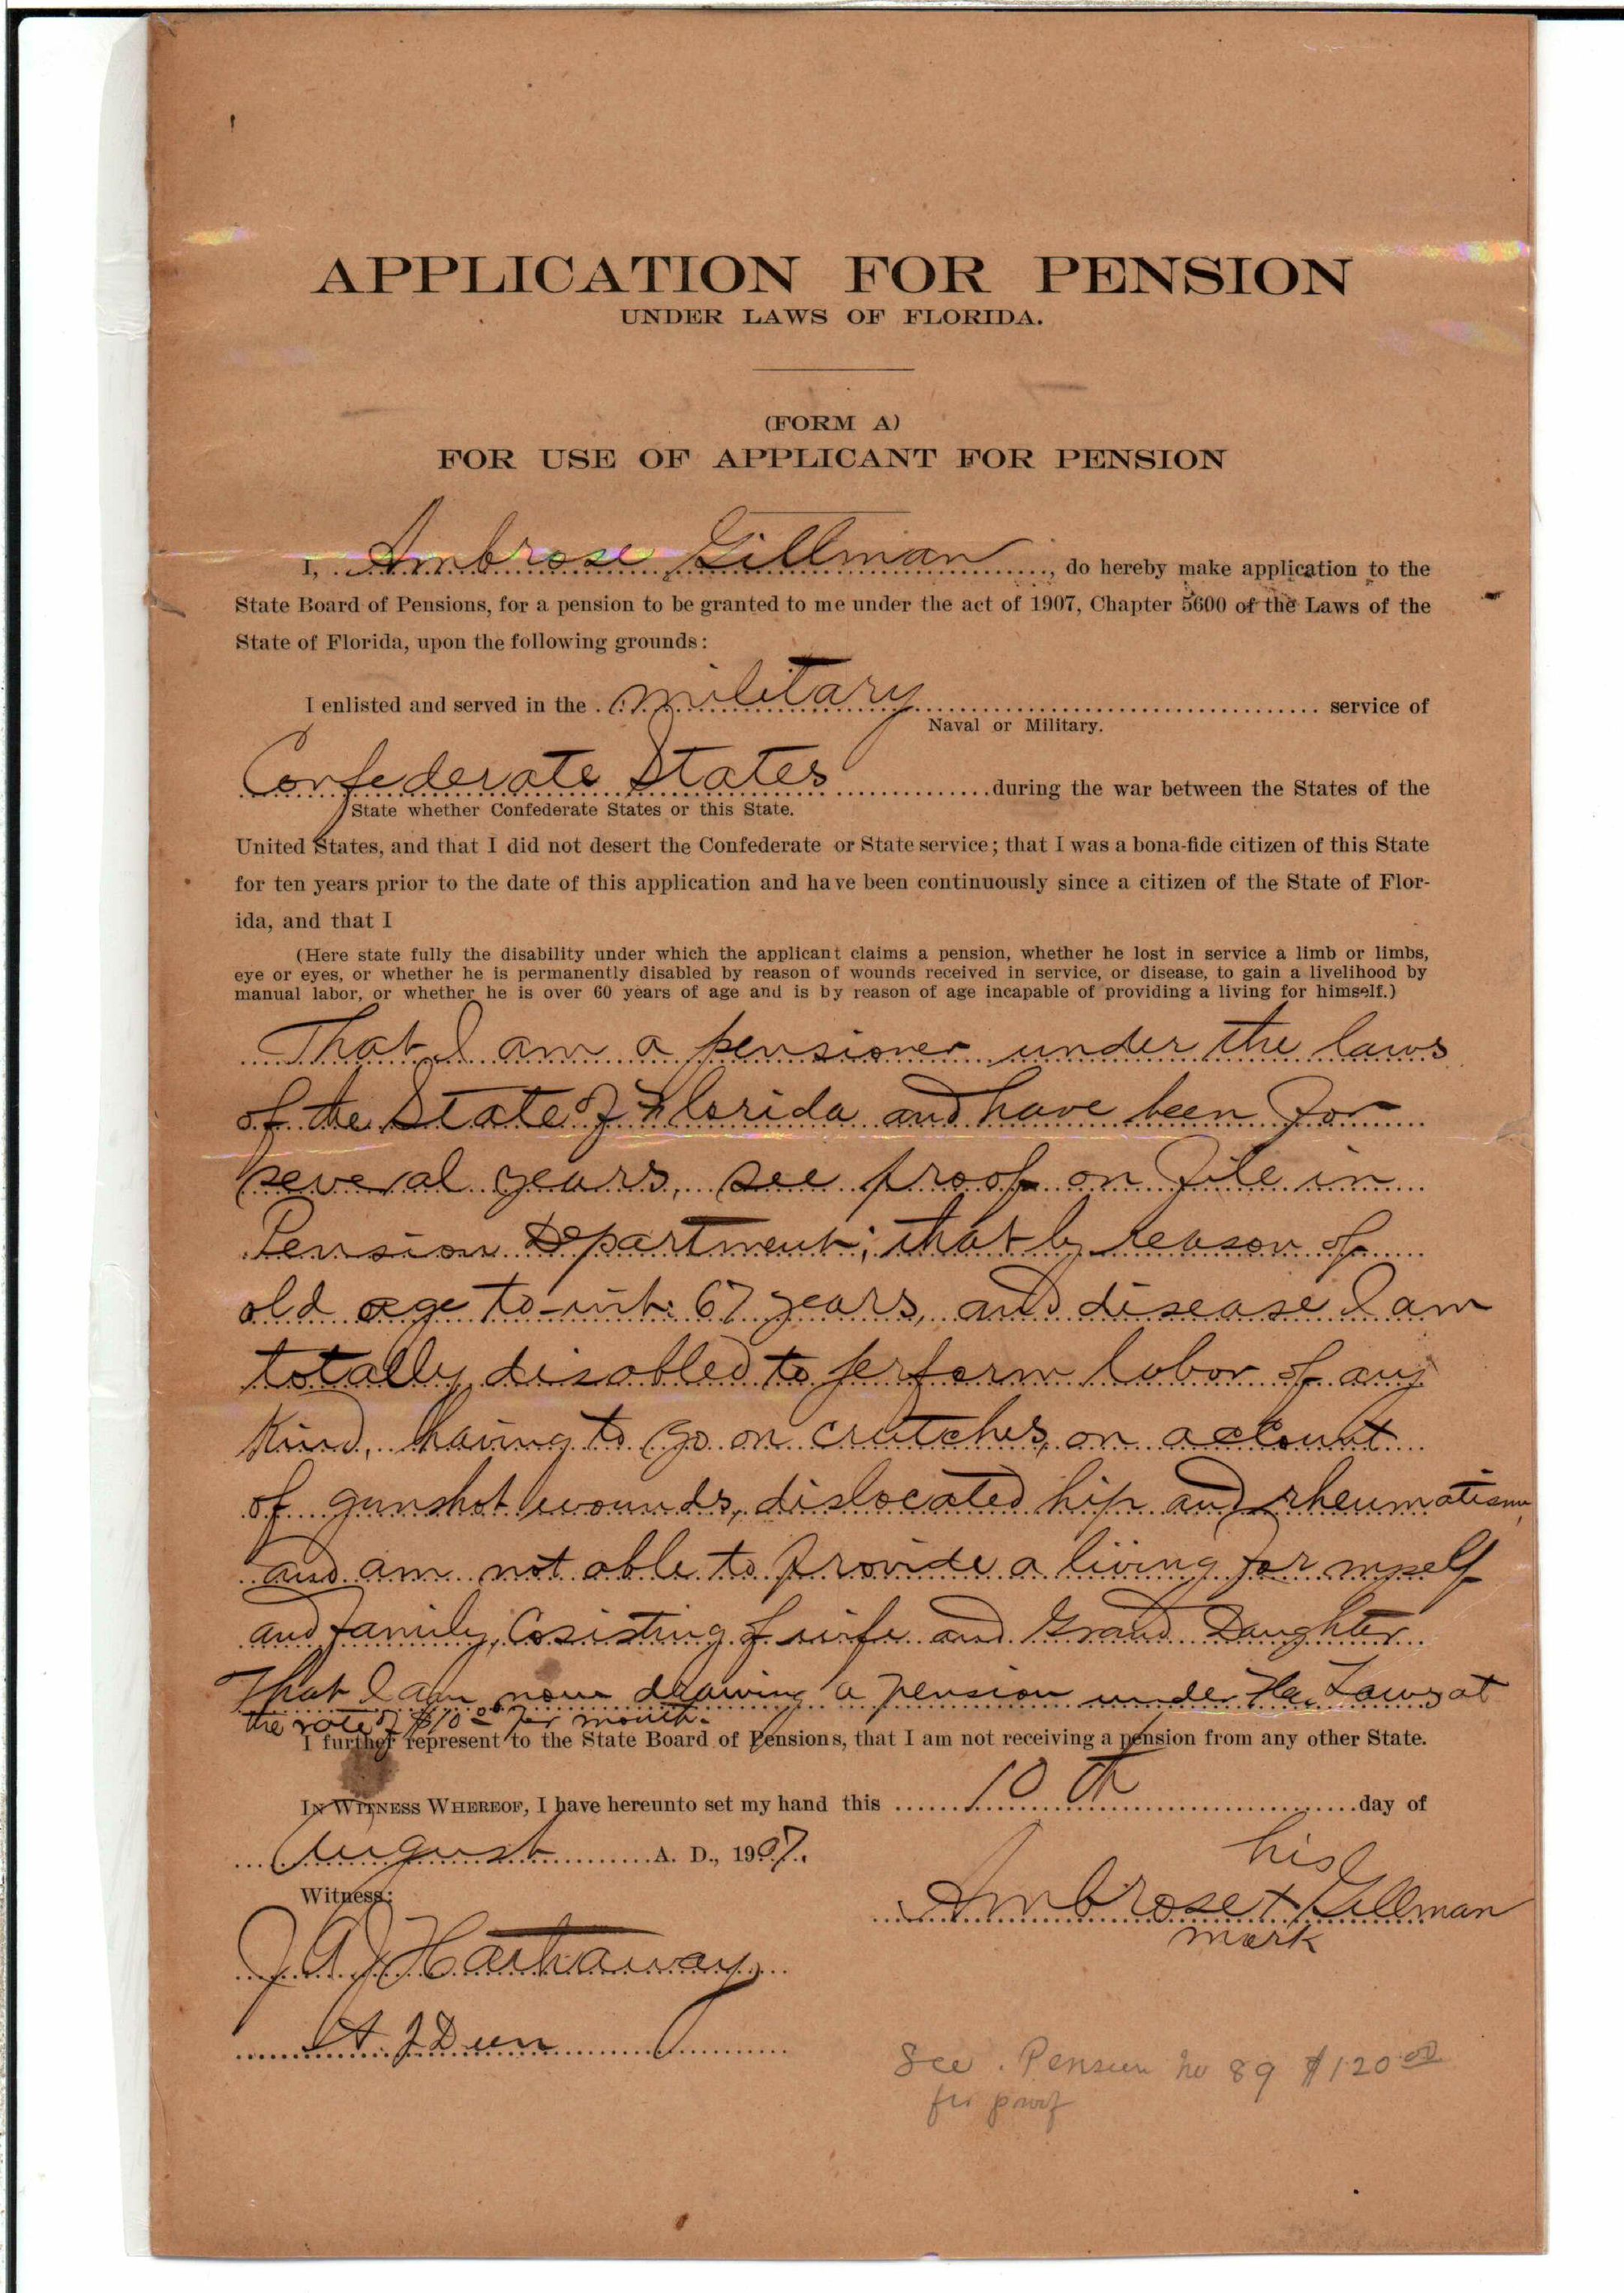 APPLICATION FOR PENSION
UNDER LAWS OF FLORIDA.
(FORM A)
FOR USE OF APPLICANT FOR PENSION
I, Ambrose Gillman, do hereby make application to the
State Board of Pensions, for a pension to be granted to me under the act of 1907, Chapter 5600 of the Laws of the
State of Florida, upon the following grounds:
I enlisted and served in the military service of
Naval or Military.
Confederate States during the war between the States of the
State whether Confederate States or this State.
United States, and that I did not desert the Confederate or State service; that I was a bona-fide citizen of this State
for ten years prior to the date of this application and have been continuously since a citizen of the State of Flor-
ida, and that I
(Here state fully the disability under which the applicant claims a pension, whether he lost in service a limb or limbs,
eye or eyes, or whether he is permanently disabled by reason of wounds received in service, or disease, to gain a livelihood by
manual labor, or whether he is over 60 years of age and is by reason of age incapable of providing a living for himself.)
That I am a pensioner under the laws
of the State of Florida and have been for
several years, see proof on file in
Pension Department; that by reason of
old age to-wit: 67 years, and disease I am
totally disabled to perform labor of any
Kind, having to go on crutches, on account
of gunshot wounds, dislocated hip and rheumatism,
and am not able to provide a living for myself
and family, Cosisting of wife and Grand Daughter
That I am now drawing a pension under Fla. Laws at
the rate of $10.00 per month.
I further represent to the State Board of Pensions, that I am not receiving a pension from any other State.
IN WITNESS WHEREOF, I have hereunto set my hand this 10th day of
August A. D., 1907.
his
Witness:
Ambrose x Gillman
mark
J A J Hathaway
J Deen
See. Pension no 89 $120.00
for proof